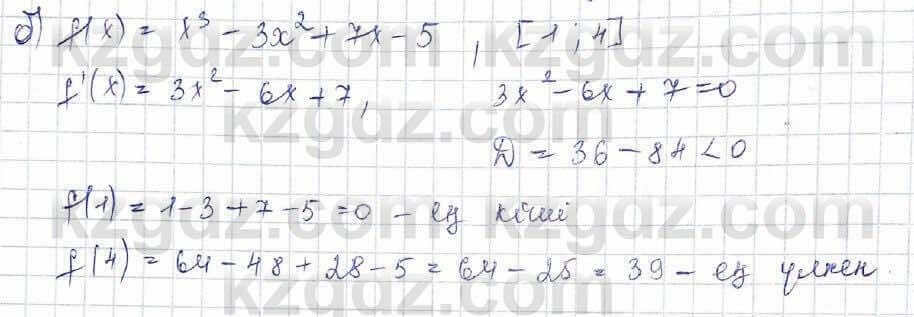 б) f(x) = x³ - 3x² + 7x - 5 , [1; 4]
f'(x) = 3x² - 6x + 7, 3x² - 6x + 7 = 0
D = 36 - 84 < 0
f(1) = 1 - 3 + 7 - 5 = 0 - ең кіші
f(4) = 64 - 48 + 28 - 5 = 64 - 25 = 39 - ең үлкен.
kzgdz.com kzgdz.com
kzgdz.com kzgdz.com
kzgdz.com kzgdz.com
kzgdz.com kzgdz.com